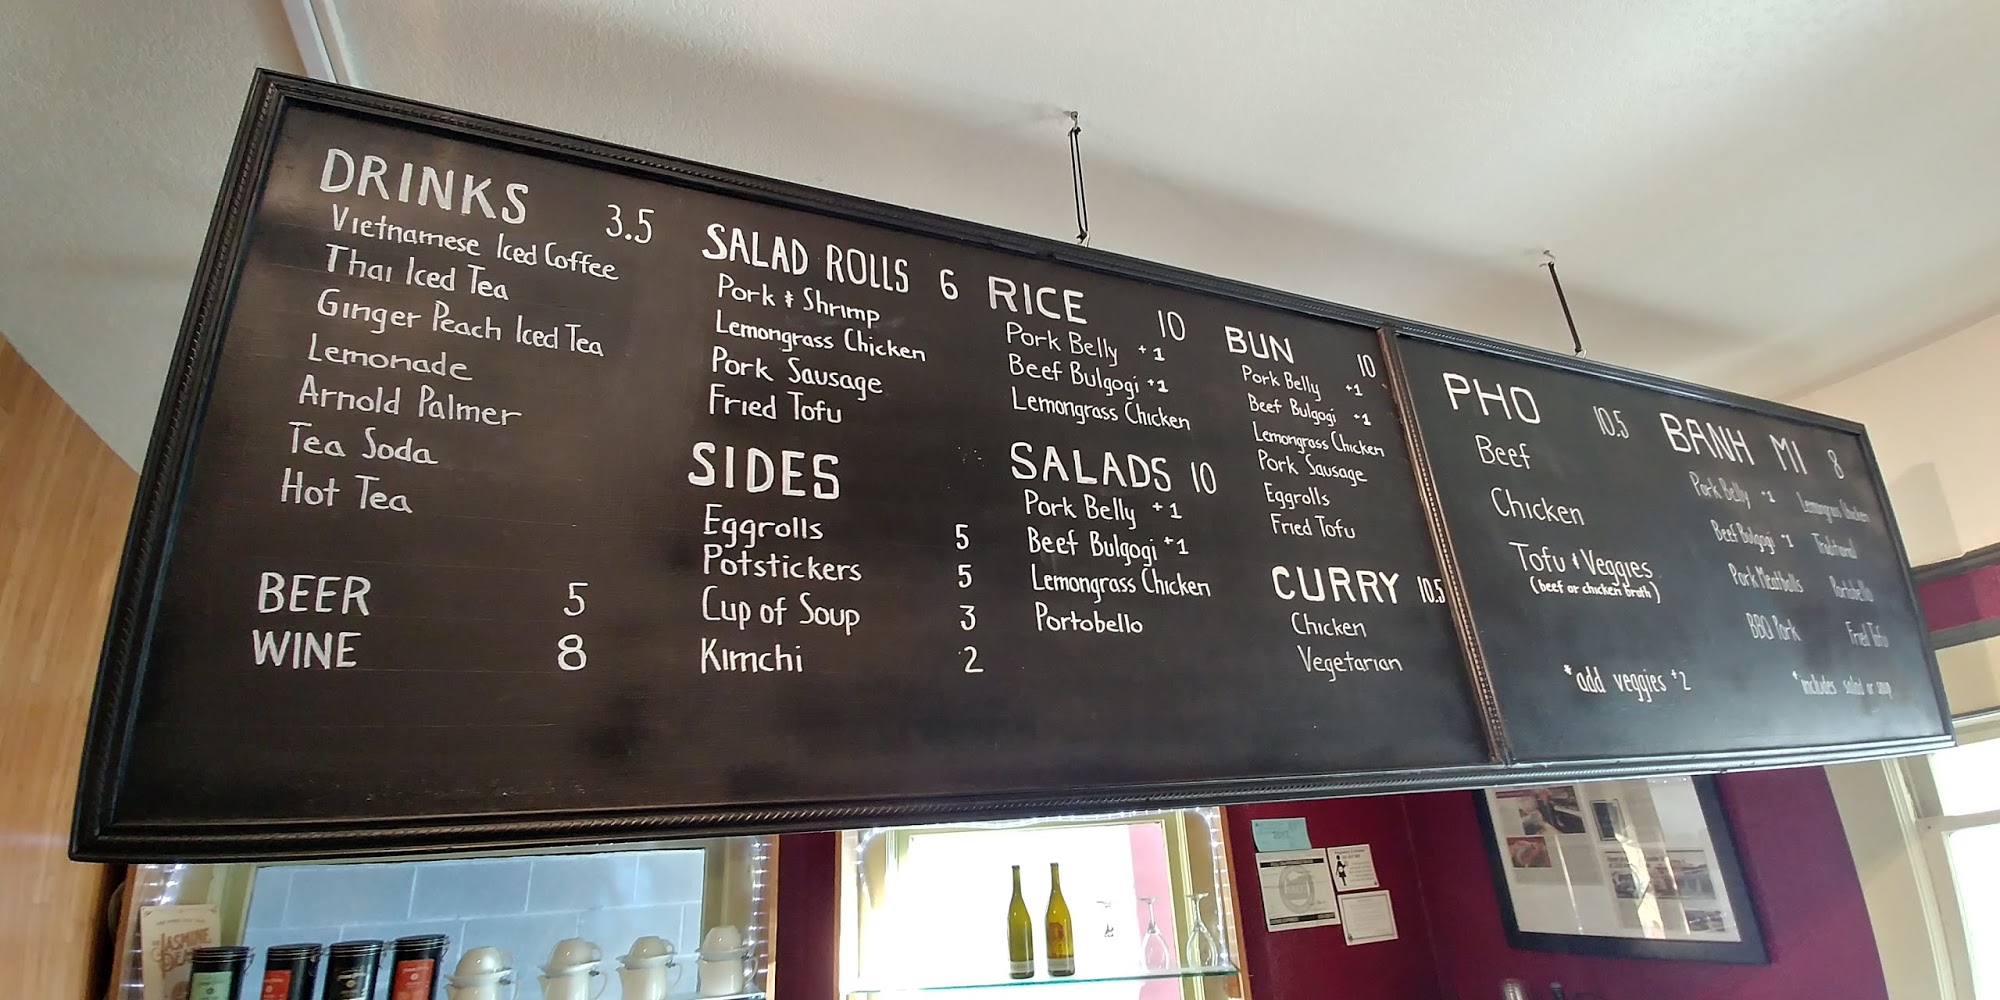 DRINKS 3.5
Vietnamese Iced Coffee
Thai Iced Tea
Ginger Peach Iced Tea
Lemonade
Arnold Palmer
Tea Soda
Hot Tea
BEER 5
WINE 8
SALAD ROLLS 6
Pork & Shrimp
Lemongrass Chicken
Pork Sausage
Fried Tofu
SIDES
Eggrolls 5
Potstickers 5
Cup of Soup 3
Kimchi 2
RICE 10
Pork Belly +1
Beef Bulgogi +1
Lemongrass Chicken
SALADS 10
Pork Belly +1
Beef Bulgogi +1
Lemongrass Chicken
Portobello
BUN 10
Pork Belly +1
Beef Bulgogi +1
Lemongrass Chicken
Pork Sausage
Eggrolls
Fried Tofu
CURRY 10.5
Chicken
Vegetarian
PHO 10.5
Beef
Chicken
Tofu & Veggies
(beef or chicken broth)
*add veggies +2
BANH MI 8
Pork Belly +1 Lemongrass Chicken
Beef Bulgogi +1 Traditional
Pork Meatballs Portobello
BBQ Pork Fried Tofu
*includes salad or soup
JASMINE